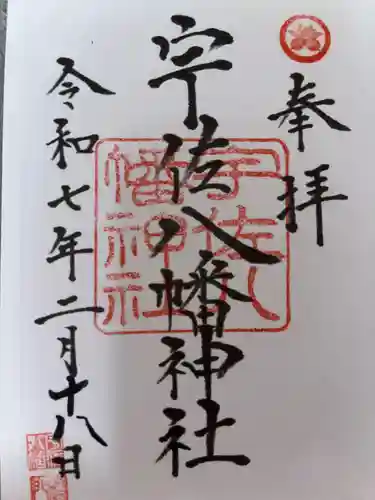 奉拝
宇佐八幡神社
宇佐八
幡神社
令和七年二月十八日